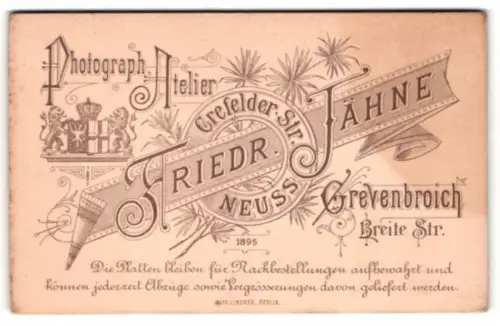 Photograph. Atelier
Crefelder-Str.
FRIEDR. JÄHNE
NEUSS
Grevenbroich
Breite Str.
1895
Die Platten bleiben für Nachbestellungen aufbewahrt und
können jederzeit Abzüge sowie Vergrösserungen davon geliefert werden.
BERLIN.